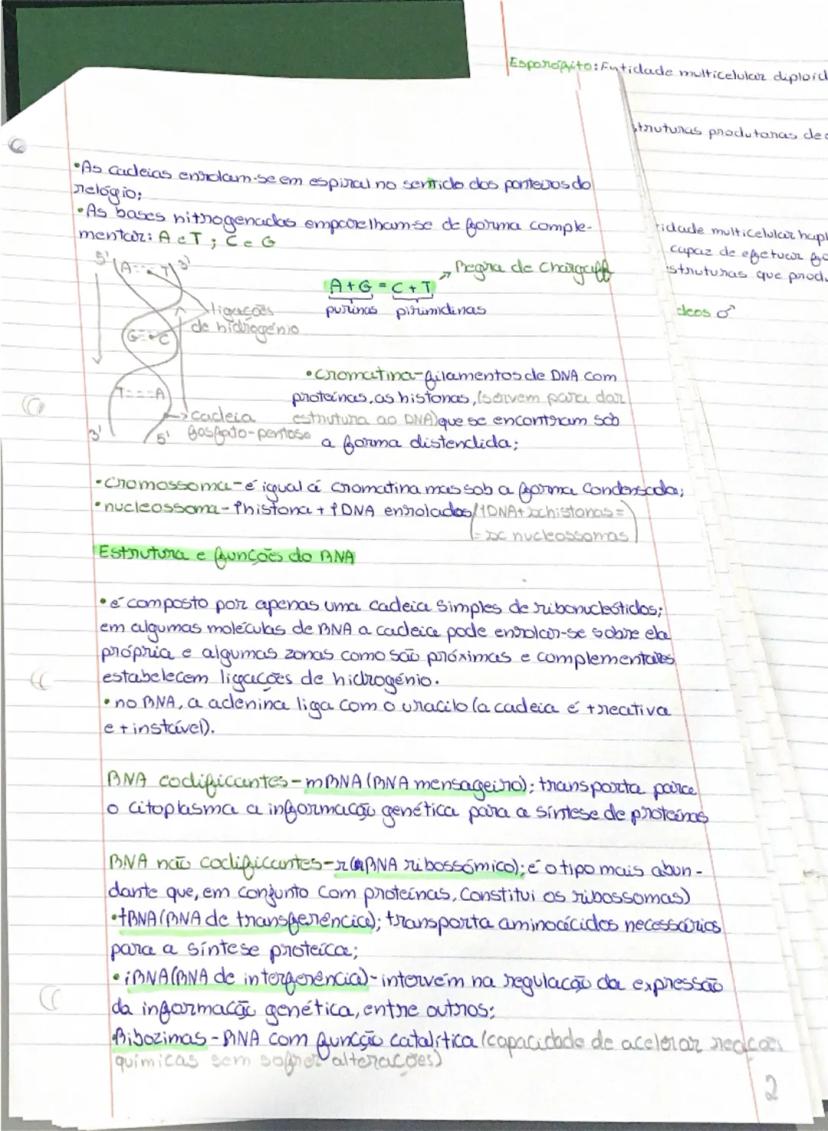 Esporófito: Entidade multicelular diploid
struturas produtoras de e
•As cadeias enrolam-se em espiral no sentido dos ponteiros do
relógio;
•As bases nitrogenadas emparelham-se de forma comple-
mentar: A e T ; C e G
idade multicelular hapl
capaz de efetuar fo
struturas que prod
ídeos ♂
5' A T 3'
A+G = C+T → Regra de Chargaff
purinas pirimidinas
ligações
de hidrogénio
G C
T A
cadeia
fosfato-pentose
3' 5'
•cromatina-filamentos de DNA com
proteínas, as histonas, (servem para dar
estrutura ao DNA) que se encontram sob
a forma distendida;
•cromossoma-é igual á cromatina mas sob a forma condensada;
•nucleossoma-1 histona + 1 DNA enrolados (1DNA+xhistonas=
= x nucleossomas)
Estrutura e funções do RNA
•é composto por apenas uma cadeia simples de ribonucleótidos;
em algumas moléculas de RNA a cadeia pode enrolar-se sobre ela
própria e algumas zonas como são próximas e complementares
estabelecem ligações de hidrogénio.
•no RNA, a adenina liga com o uracilo (a cadeia é + reativa
e + instável).
RNA codificantes-mRNA (RNA mensageiro); transporta para
o citoplasma a informação genética para a síntese de proteínas
RNA não codificantes-r(RNA ribossómico); é o tipo mais abun-
dante que, em conjunto com proteínas, constitui os ribossomas)
•tRNA (RNA de transferência); transporta aminoácidos necessários
para a síntese proteíca;
•iRNA (RNA de interferência)-intervém na regulação da expressão
da informação genética, entre outros;
Ribozimas-RNA com função catalítica (capacidade de acelerar reações
químicas sem sofrer alterações)
2